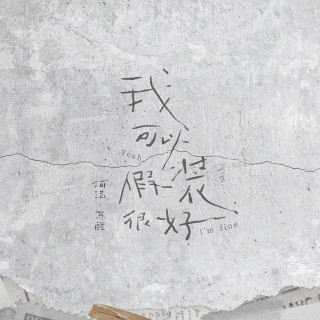 我
可以
Yeah
假装
很好
I'm fine
何洁
苏醒